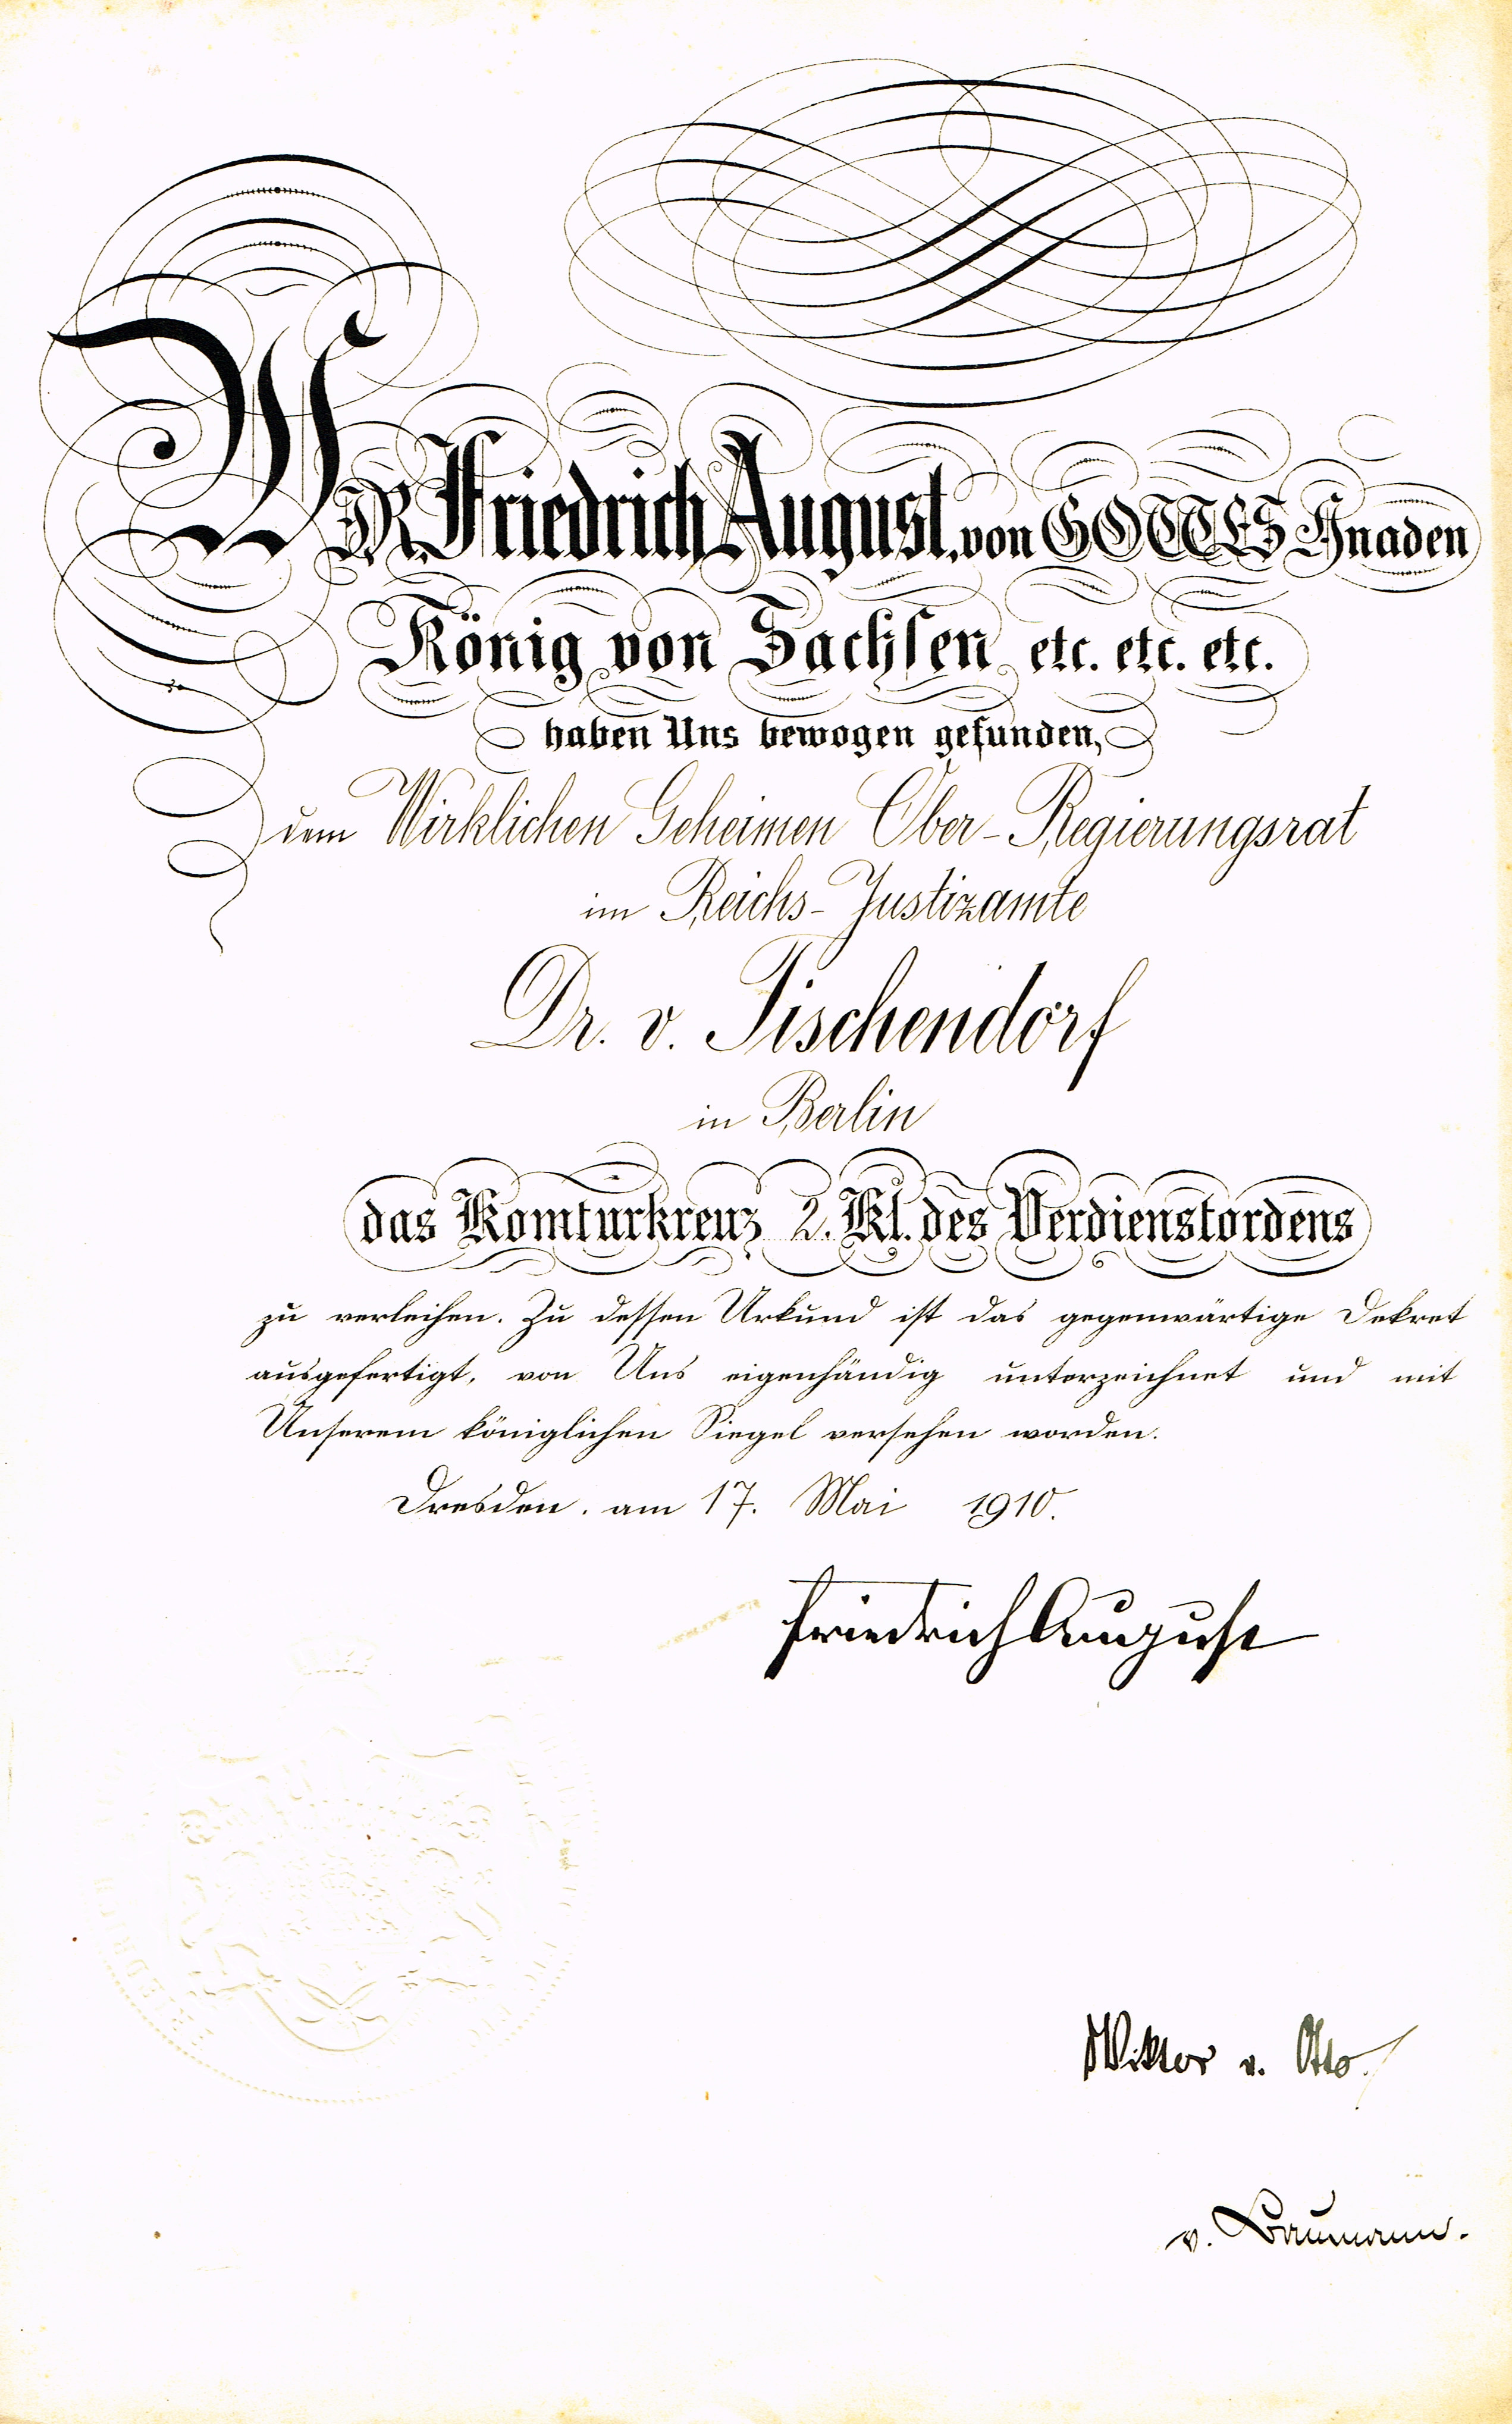 WIR Friedrich August, von GOTTES Gnaden
König von Sachsen etc. etc. etc.
haben Uns bewogen gefunden,
dem Wirklichen Geheimen Ober-Regierungsrat
im Reichs-Justizamte
Dr. v. Tischendorf
in Berlin
das Komturkreuz 2. Kl. des Verdienstordens
zu verleihen. Zu dessen Urkund ist das gegenwärtige Dekret
ausgefertigt, von Uns eigenhändig unterzeichnet und mit
Unserem königlichen Siegel versehen worden.
Dresden, am 17. Mai 1910.
Friedrich August
Wiktor v. Otto.
v. Baumann.